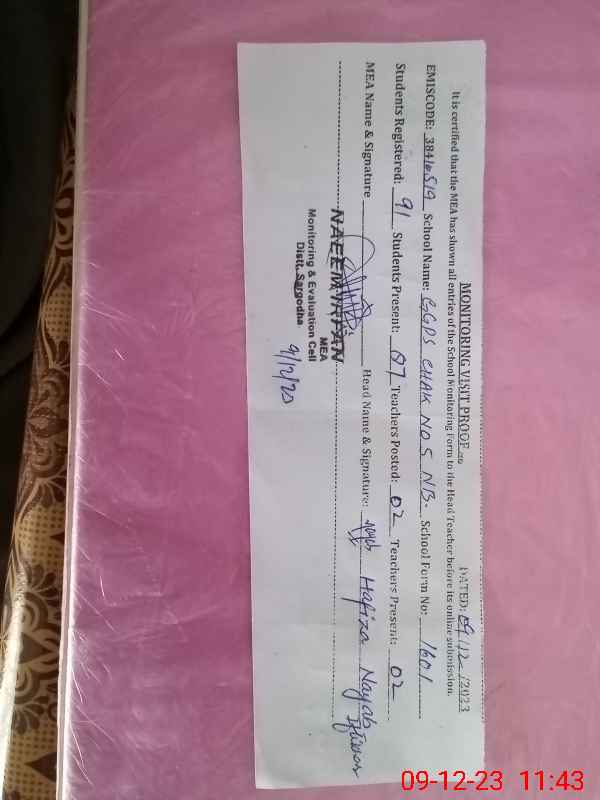 MONITORING VISIT PROOF
DATED: 09/12/2023
It is certified that the MEA has shown all entries of the School Monitoring Form to the Head Teacher before its online submission.
EMISCODE: 38410519 School Name: GGPS CHAK NO 5 NB. School Form No: 1601
Students Registered: 91 Students Present: 87 Teachers Posted: 02 Teachers Present: 02
MEA Name & Signature Head Name & Signature: Hafiza Nayab
NAEEM IRFAN
MEA
Monitoring & Evaluation Cell
Distt. Sargodha.
9/12/23
09-12-23 11:43